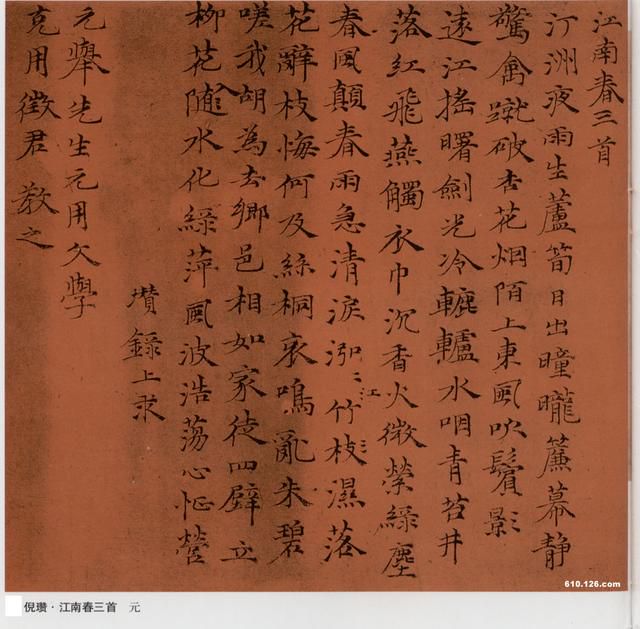 江南春三首
汀洲夜雨生蘆筍日出曈曨簾幕静
驚禽蹴破杏花烟陌上東風吹鬢影
遠江搖曙劍光冷轆轤水咽青苔井
落紅飛燕觸衣巾沉香火微縈綠塵
春風顛春雨急清淚泓〻江竹枝濕落
花辭枝悔何及絲桐哀鳴亂朱碧
嗟我胡為去鄉邑相如家徒四壁立
柳花隨水化綠萍風波浩蕩心怔營
瓚錄上求
元舉先生元用文學
克用徵君教之
610.126.com
倪瓒·江南春三首 元